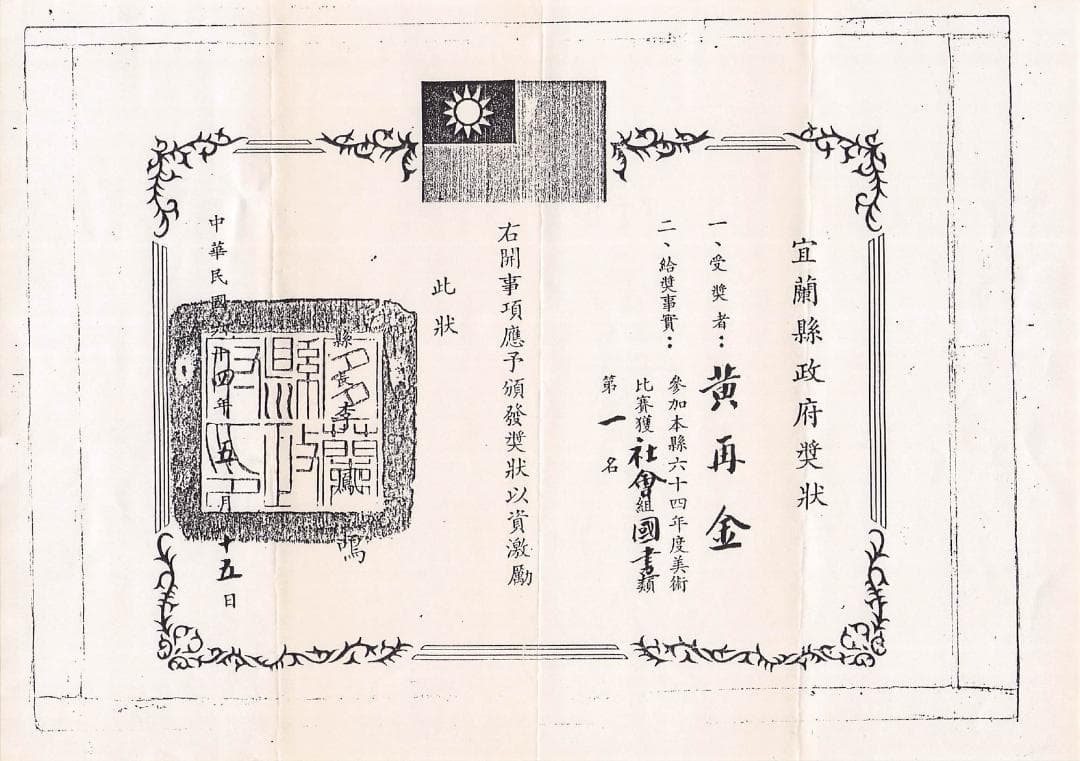 宜蘭縣政府奬狀
一、受奬者：黃再金
二、給奬事實：參加本縣六十四年度美術
比賽獲社會組國書類
第一名
右開事項應予頒發奬狀以資激勵
此狀
縣長李鳳鳴
中華民國六十四年五月十五日